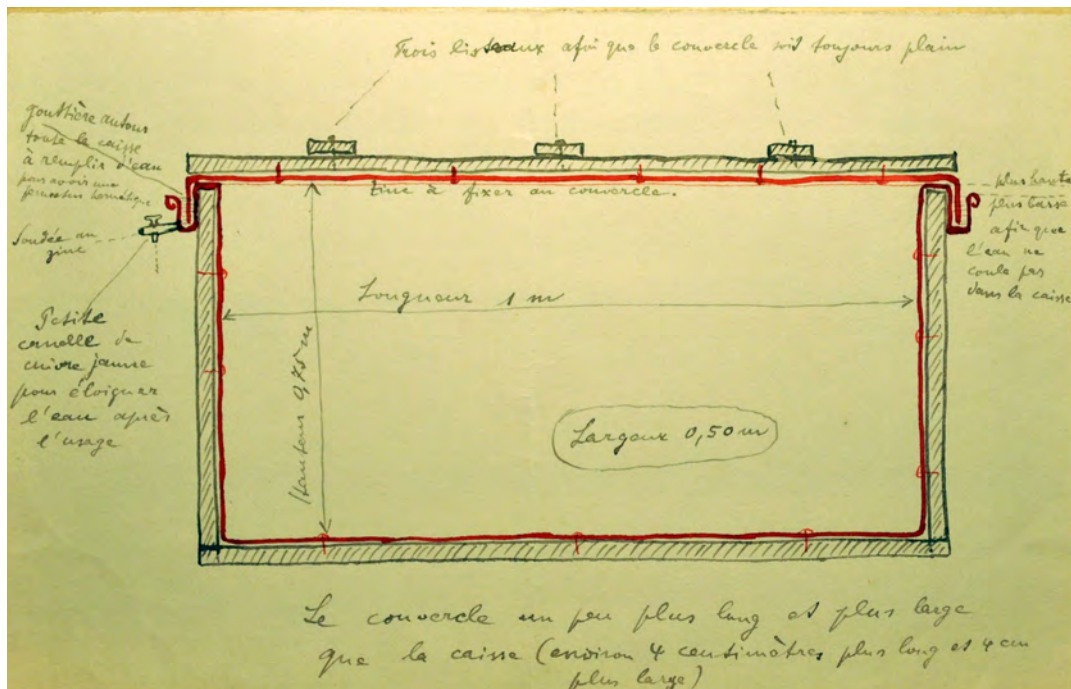 Trois listeaux afin que le convercle soit toujours plain
gouttière autour
toute la caisse
à remplir d'eau
pour avoir une
fermeture
Soudée au
zinc
Petite
cannelle de
cuivre jaune
pour éloigner
l'eau après
l'usage
zinc à fixer au convercle.
plus haute
plus basse
afin que
l'eau ne
coule pas
dans la caisse
Longueur 1 m
Hauteur 0,75 m
Largeur 0,50 m
Le convercle un peu plus long et plus large
que la caisse (environ 4 centimètres plus long et 4 cm
plus large)